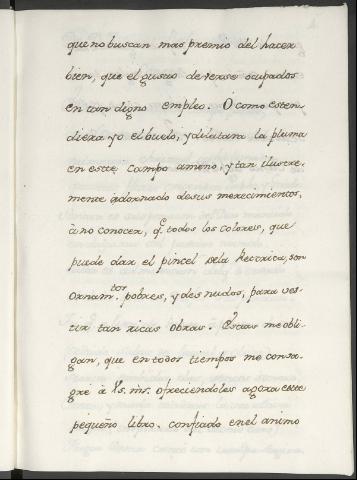 que no buscan mas premio del hacer
bien, que el gusto de verse ocupados
en tan digno empleo. O como esten-
diera yo el buelo, y dilatara la pluma
en este campo ameno, y tan ilustre-
mente adornado de sus merecimientos,
à no conocer, q̃ todos los colores, que
puede dar el pincel de la Retorica, son
Ornam.tos pobres, y desnudos, para ves-
tir tan ricas obras. Estas me obli-
gan, que en todos tiempos me consa-
gre à Vs. ms. ofreciendoles agora este
pequeño libro. confiado en el animo